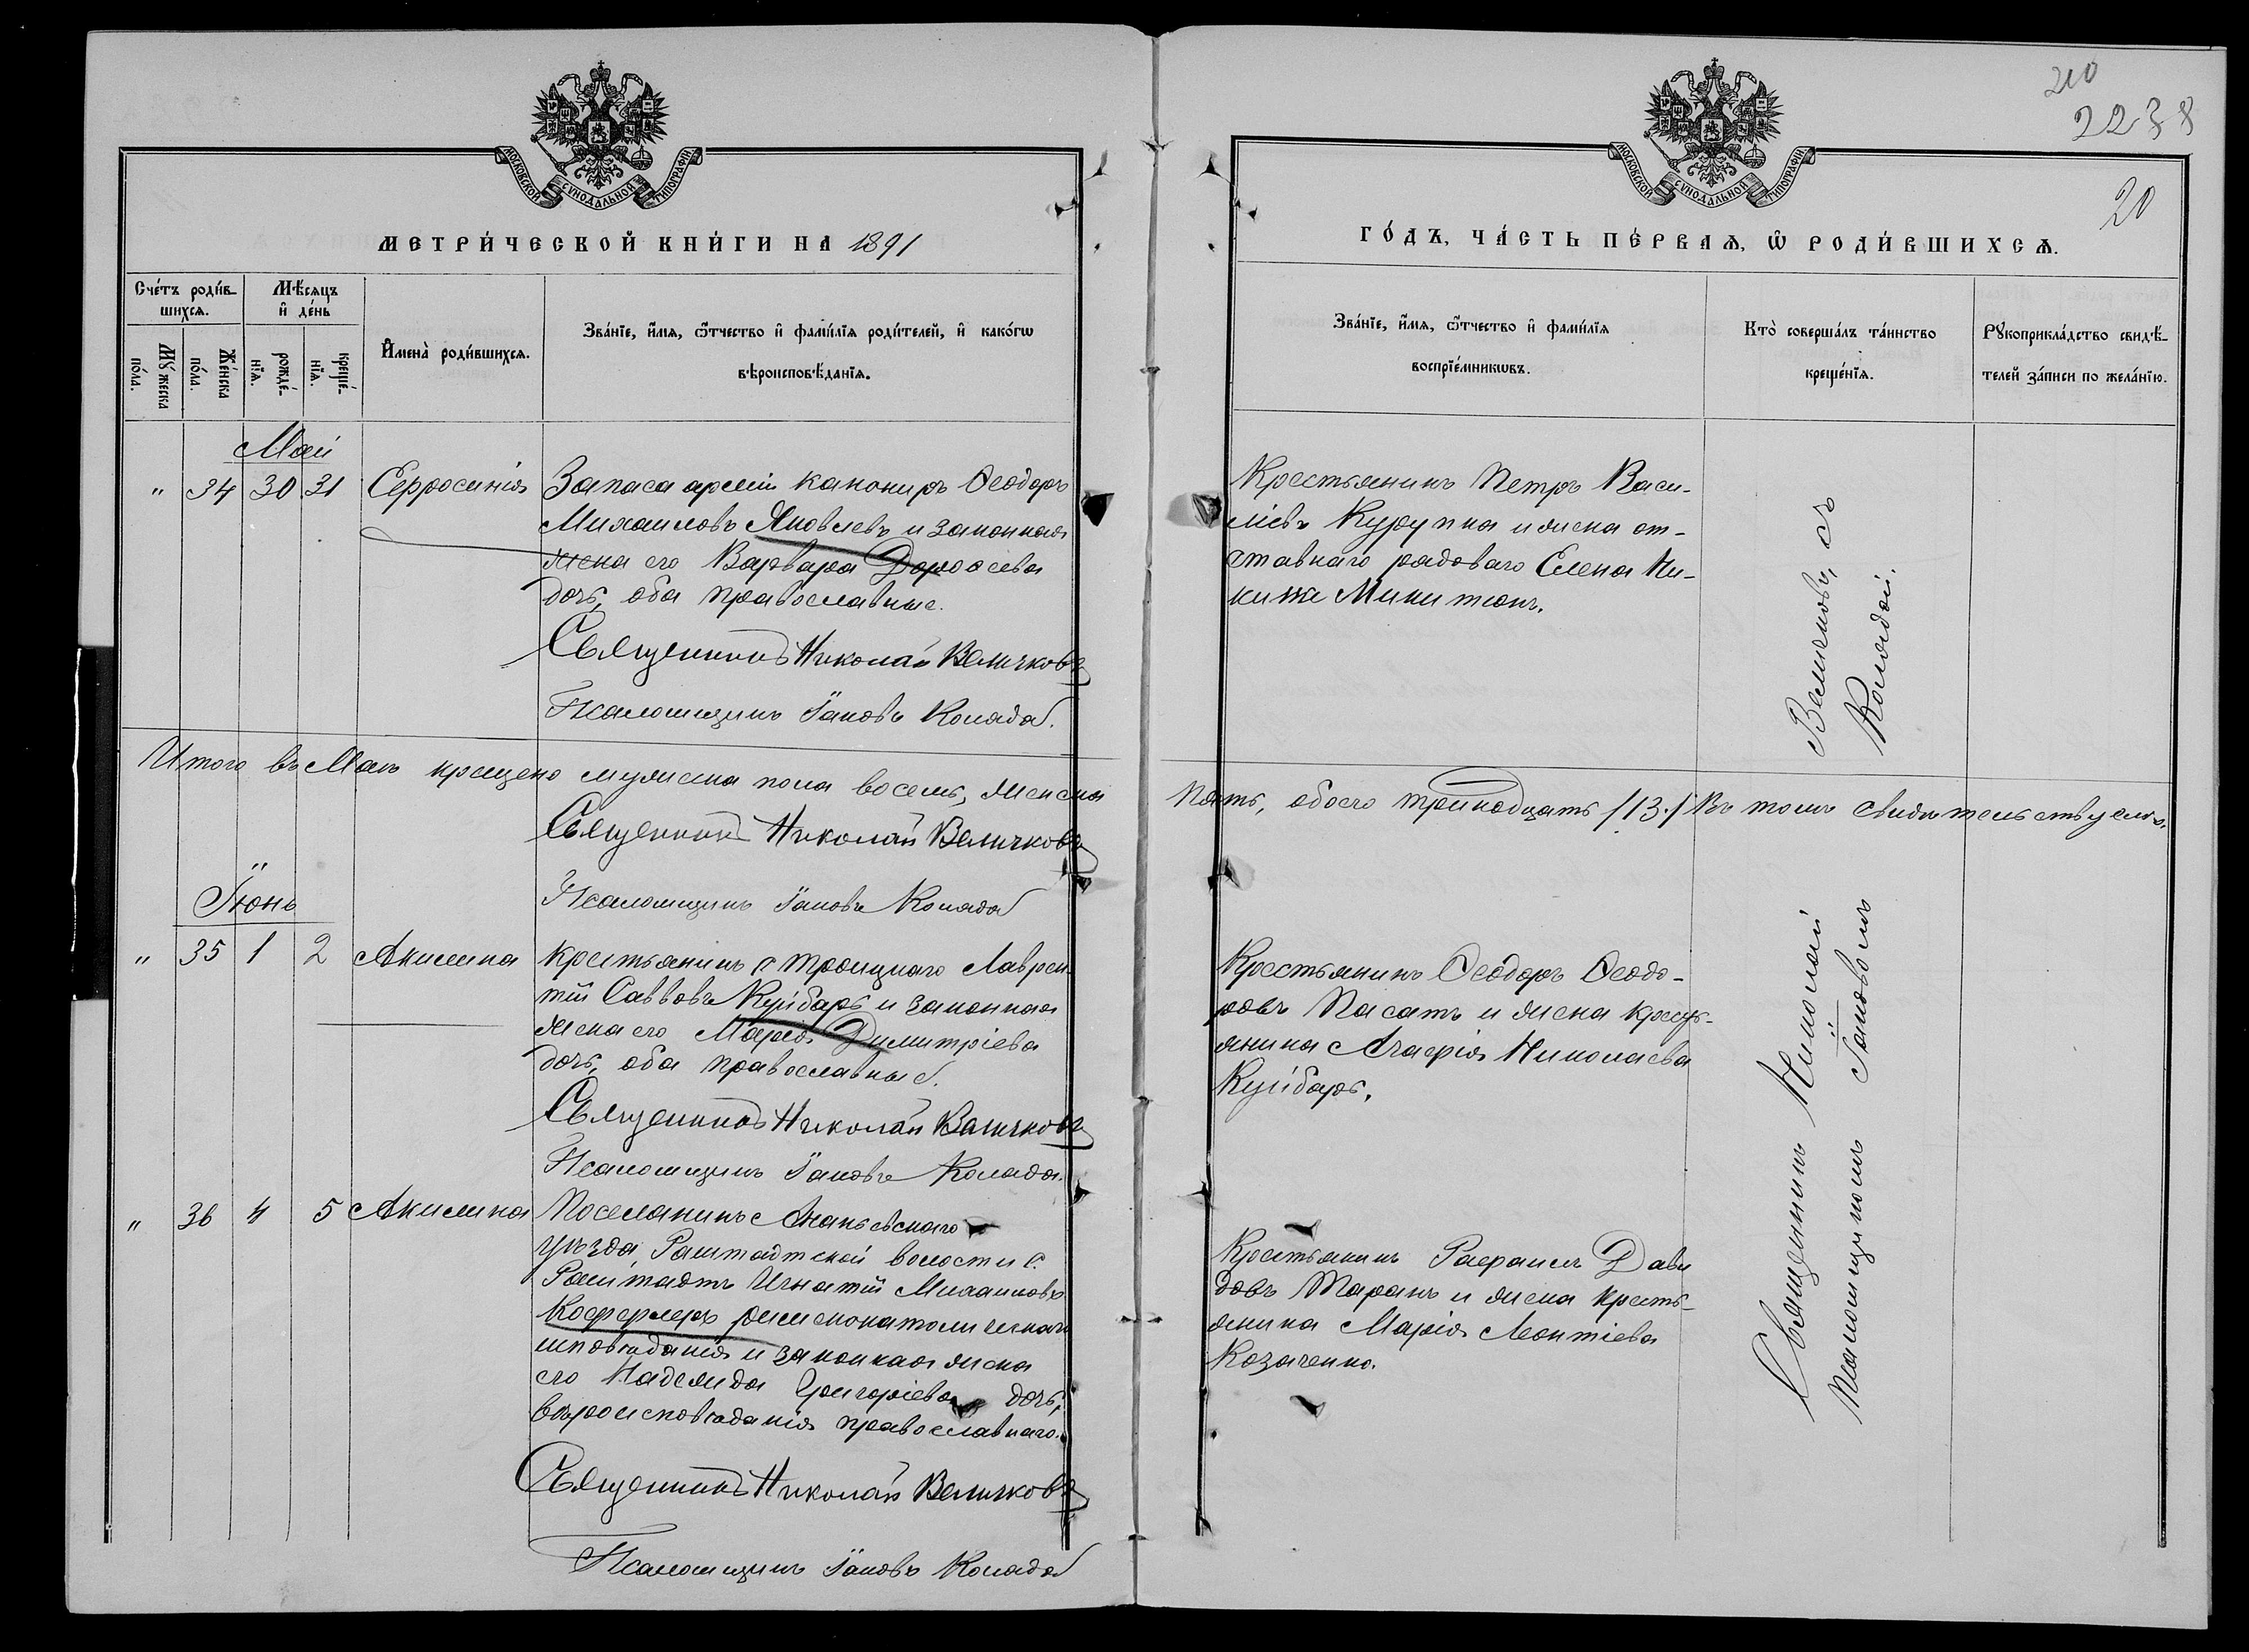 МОСКОВСКОЙ СѴНОДАЛЬНОЙ ТИПОГРАФІИ
МЕТРИ́ЧЕСКОЙ КНИ́ГИ НА 1891
Сче́тъ роди́в-
шихсѧ.
Мѣ́сѧцъ
и҆ де́нь
Мꙋ́жеска
по́ла.
Же́нска
по́ла.
рожде́-
нїѧ.
креще́-
нїѧ.
И҆мена̀ роди́вшихсѧ.
Зва́нїе, и҆́мѧ, ѻ҆́тчество и҆ фами́лїѧ роди́телей, и҆ како́гѡ
вѣроисповѣ́данїѧ.
Май
" 34 30 31 Евфросинія
Запаса арміи канониръ Ѳеодоръ
Михаиловъ Яковлевъ и законная
жена его Варвара Дороѳеева
дочь, оба православные.
Священникъ Николай Величковъ
Псаломщикъ Іаковъ Коляда.
Итого въ Маѣ крещено мужеска пола восемь, женска
Священникъ Николай Величковъ
Псаломщикъ Іаковъ Коляда
Іюнь
" 35 1 2 Акилина
Крестьянинъ с. Троицкаго Лаврен-
тій Саввовъ Куйбарь и законная
жена его Марія Димитріева
дочь, оба православные.
Священникъ Николай Величковъ
Псаломщикъ Іаковъ Коляда.
" 36 4 5 Акилина
Поселянинъ Ананьевскаго
уѣзда, Раштадтской волости с.
Раштадтъ Игнатій Михаиловъ
Кофферлеръ римскокатолическаго
исповѣданія и законная жена
его Надежда Григоріева дочь,
вѣроисповѣданія православнаго.
Священникъ Николай Величковъ
Псаломщикъ Іаковъ Коляда
210
2238
20
МОСКОВСКОЙ СѴНОДАЛЬНОЙ ТИПОГРАФІИ
ГО́ДЪ, ЧА́СТЬ ПЕ́РВАѦ, Ѡ҆ РОДИ́ВШИХСѦ.
Зва́нїе, и҆́мѧ, ѻ҆́тчество и҆ фами́лїѧ
воспрїе́мникѡвъ.
Кто̀ соверша́лъ та́инство
креще́нїѧ.
Рꙋкоприкла́дство свидѣ́-
телей за́писи по жела́нїю.
Крестьянинъ Петръ Васи-
ліевъ Курупка и жена от-
ставнаго рядоваго Елена
пять, обоего тринадцать /13./ Въ томъ свидѣтельствуемъ.
Крестьянинъ Ѳеодоръ Ѳеодо-
ровъ Пасатъ и жена кресть-
янина Агафія Николаева
Куйбарь.
Крестьянинъ Рафаилъ Дави-
довъ Таранъ и жена кресть-
янина Марія Леонтіева
Козаченко.
Священникъ Николай Величковъ, съ
псаломщикомъ Іаковомъ Колядой.